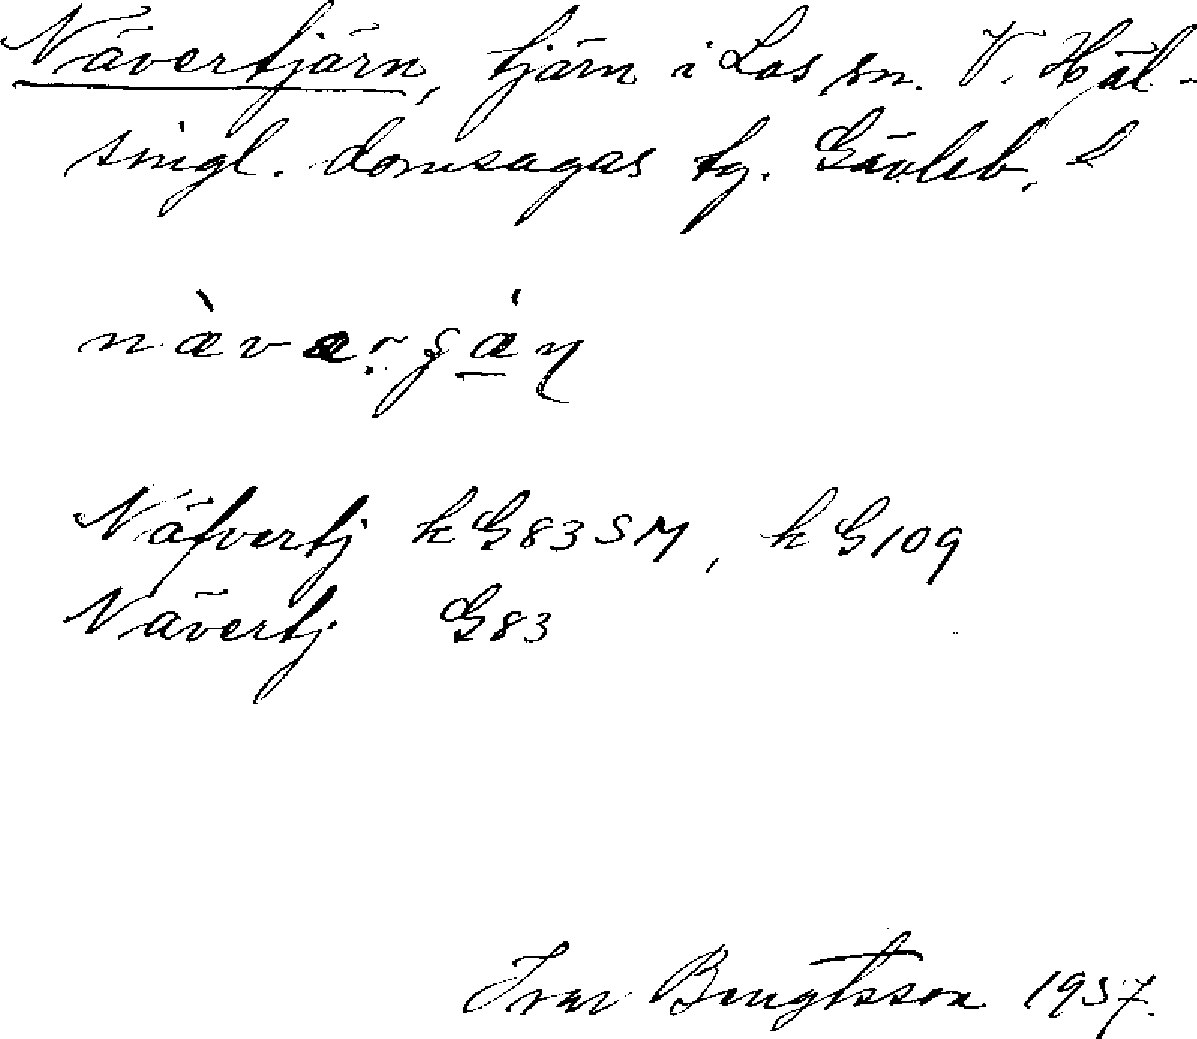 Nävertjärn, tjärn i Los sn. V. Häl-
singl. domsagas tg. Gävleb. l
Näfvertj k G83SM, k G109
Nävertj G83
Ivar Bengtsson 1937.